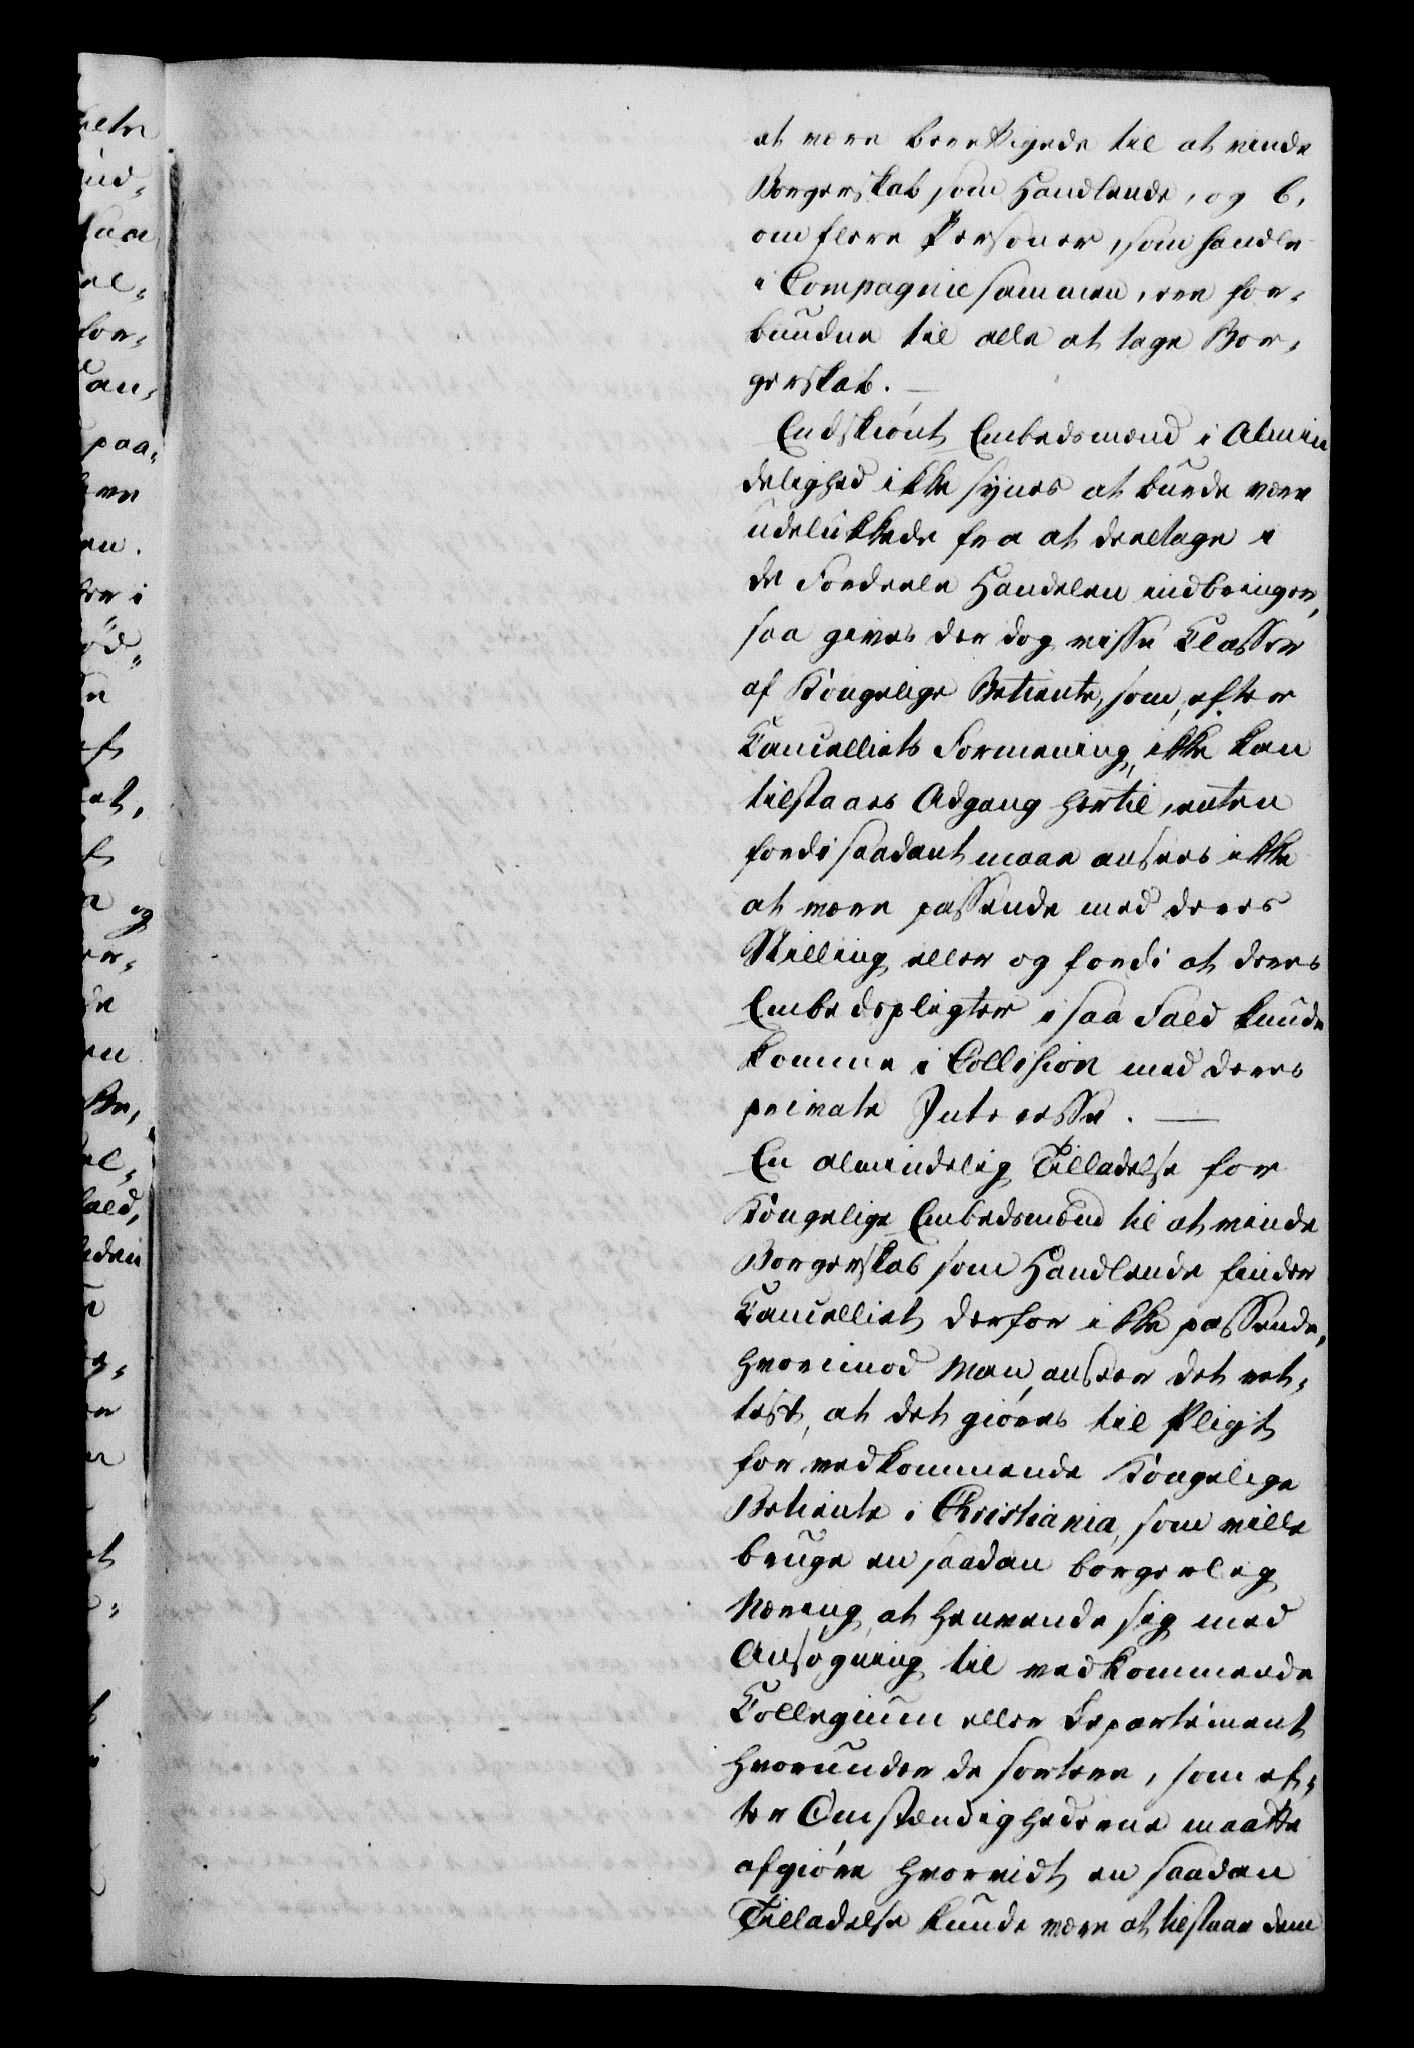 at være berettigede til at vinde
Borgerskab som Handlende, og 6,
om flere Personer, som handle
i Compagnie sammen, ere for-
bundne til alle at tage Bor-
gerskab. —
Endskiønt Embedsmænd i Almin
delighed ikke synes at burde være
udelukkede fra at deeltage i
de Fordeele Handelen indbringer,
saa gives der dog visse Classer
af Kongelige Betiente, som, efter
Cancelliets Formening, ikke kan
tilstaaes Adgang hertil, enten
fordi saadant maae ansees ikke
at være passende med deres
Stilling eller og fordi at deres
Embedspligter i saa Fald kunde
komme i Collision med deres
private Interesse. —
En almindelig Tilladelse for
Kongelige Embedsmænd til at vinde
Borgerskab som Handlende finder
Cancelliet derfor ikke passende,
hvorimod Man anseer det ret-
test, at det giøres til Pligt
for vedkommende Kongelige
Betiente i Christiania, som ville
bruge en saadan borgerlig
Næring, at henvende sig med
Ansøgning til vedkommende
Collegium eller Departement
hvorunder de sortere, som ef-
ter Omstændighederne maatte
afgiøre hvorvidt en saadan
Tilladelse kunde være at tilstaae dem